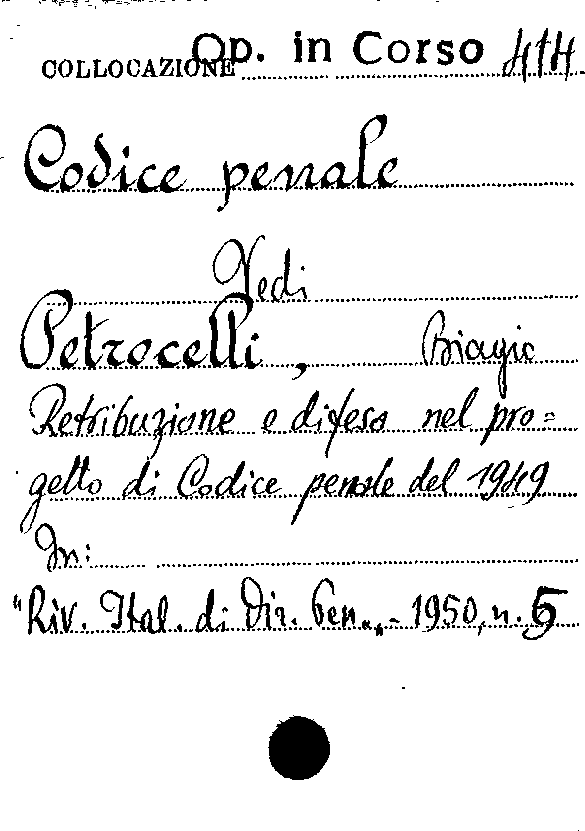 COLLOCAZIONE Op. in Corso 414
Codice penale
Vedi
Petrocelli, Biagio
Retribuzione e difesa nel pro=
getto di Codice penale del 1949
In:
"Riv. Ital. di Dir. Pen.„ - 1950, n. 5